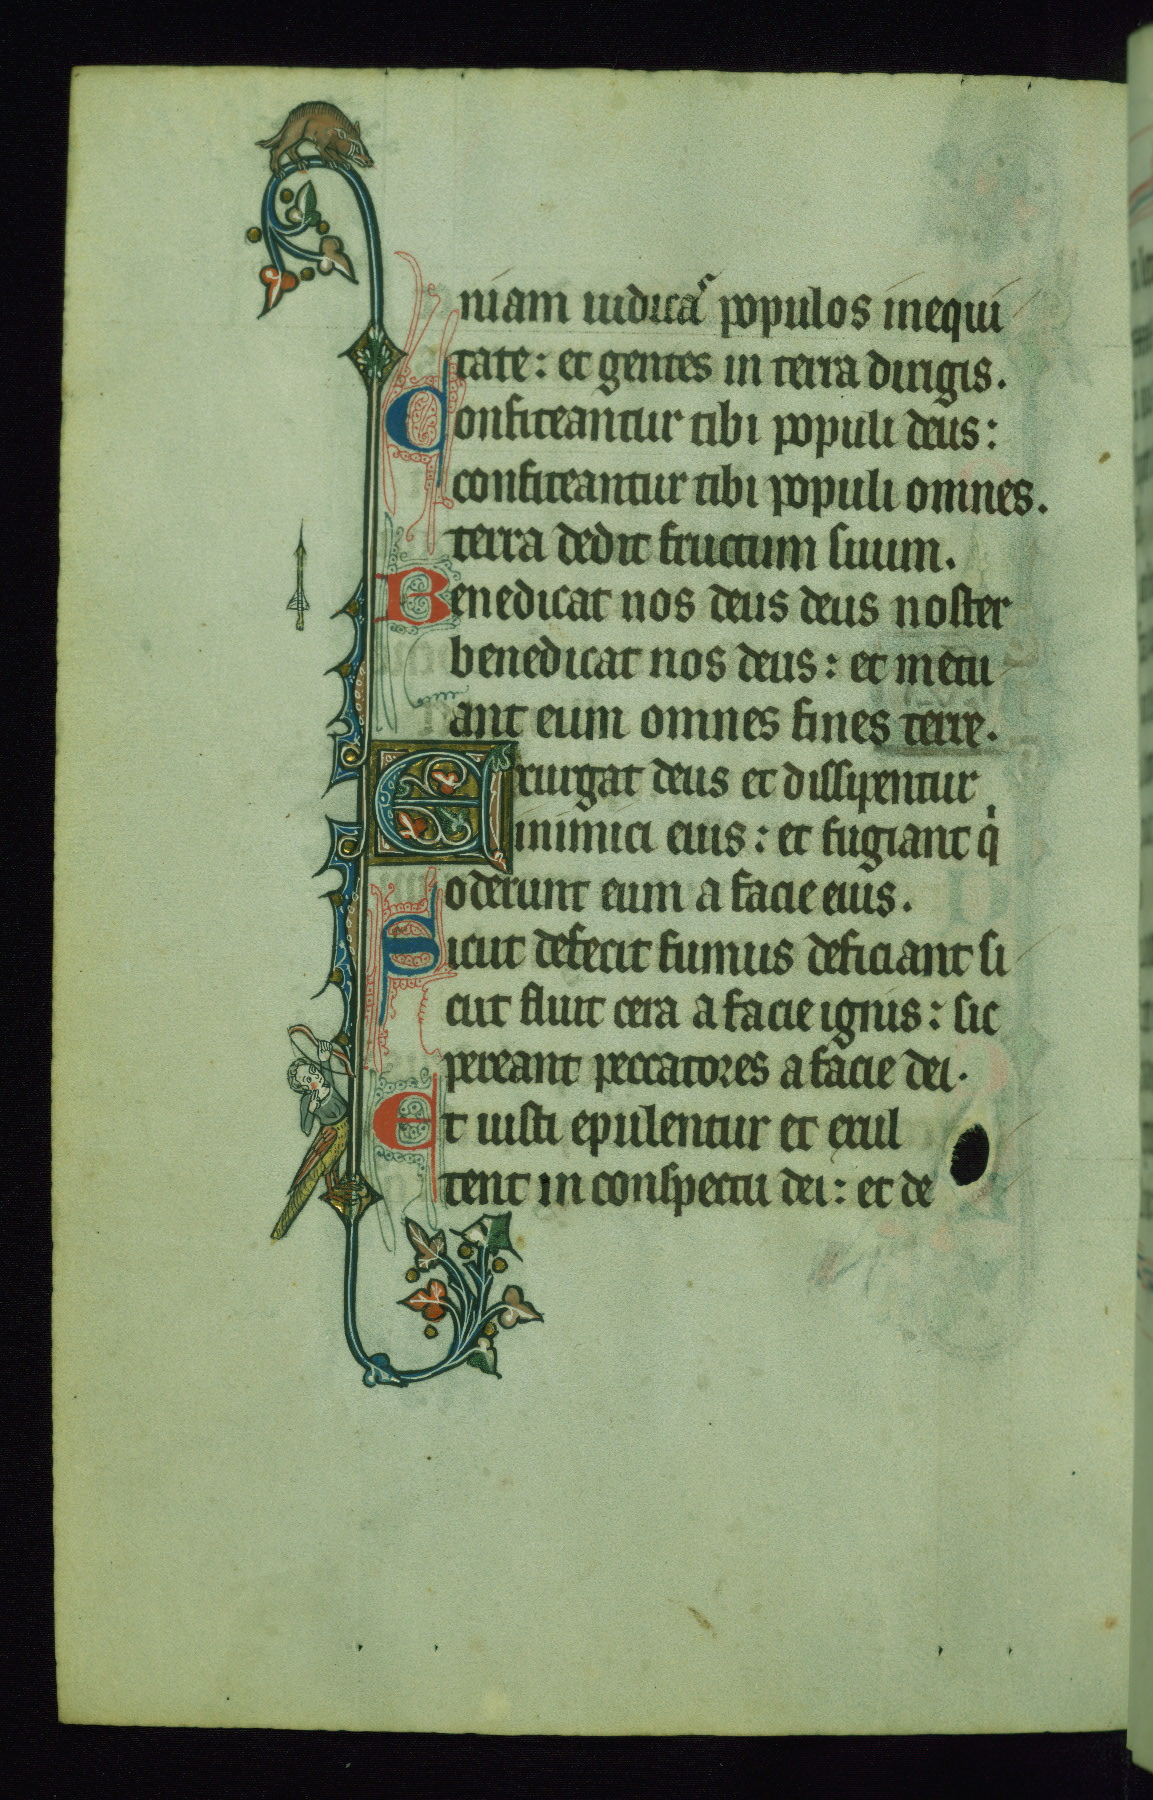 niam iudicaˢ populos in equi
tate: et gentes in terra dirigis.
Confiteantur tibi populi deus:
confiteantur tibi populi omnes.
terra dedit fructum suum.
Benedicat nos deus deus noster
benedicat nos deus: et metu
ant eum omnes fines terre.
Exurgat deus et dissipentur
inimici eius: et fugiant qͥ
oderunt eum a facie eius.
Sicut defecit fumus deficiant si
cut fluit cera a facie ignis: sic
pereant peccatores a facie dei.
Et iusti epulentur et exul
tent in conspectu dei: et de